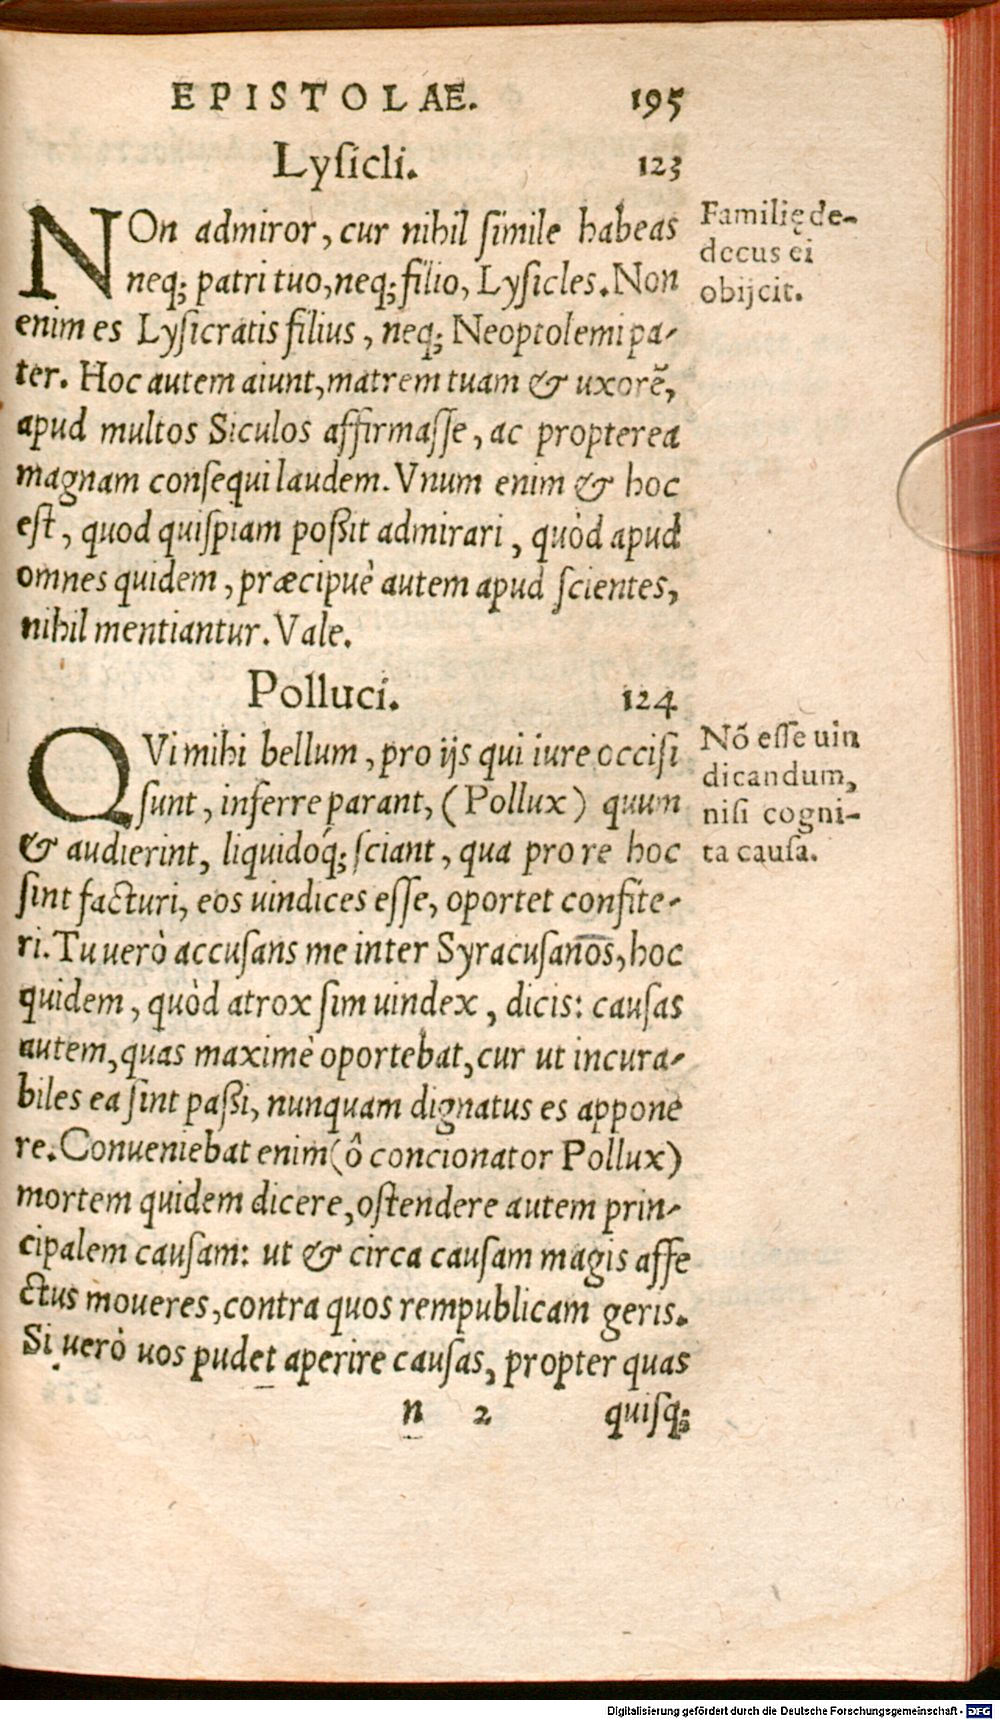 EPISTOLAE. 195
Lysicli. 123
NOn admiror, cur nihil simile habeas
neq; patri tuo, neq; filio, Lysicles. Non
enim es Lysicratis filius, neq; Neoptolemi pa-
ter. Hoc autem aiunt, matrem tuam & uxorẽ,
apud multos Siculos affirmasse, ac propterea
magnam consequi laudem. Vnum enim & hoc
est, quod quispiam poßit admirari, quòd apud
omnes quidem, præcipuè autem apud scientes,
nihil mentiantur. Vale.
Familię de-
decus ei
obijcit.
Polluci. 124
QVi mihi bellum, pro ijs qui iure occisi
sunt, inferre parant, (Pollux) quum
& audierint, liquidoq́; sciant, qua pro re hoc
sint facturi, eos uindices esse, oportet confite-
ri. Tu uerò accusans me inter Syracusanos, hoc
quidem, quòd atrox sim uindex, dicis: causas
autem, quas maximè oportebat, cur ut incura-
biles ea sint paßi, nunquam dignatus es appone
re. Conueniebat enim (ô concionator Pollux)
mortem quidem dicere, ostendere autem prin-
cipalem causam: ut & circa causam magis affe
ctus moueres, contra quos rempublicam geris.
Si uerò uos pudet aperire causas, propter quas
Nõ esse uin
dicandum,
nisi cogni-
ta causa.
n 2 quisq;
Digitalisierung gefördert durch die Deutsche Forschungsgemeinschaft - DFG